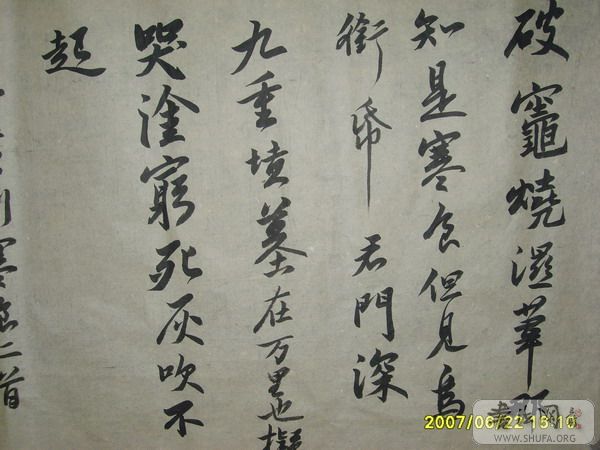 破竈燒濕葦那
知是寒食但見烏
銜帋君門深
九重墳墓在万里也擬
哭塗窮死灰吹不
起
州寒食二首
2007/06/22 15:10
WWW.SHUFA.ORG